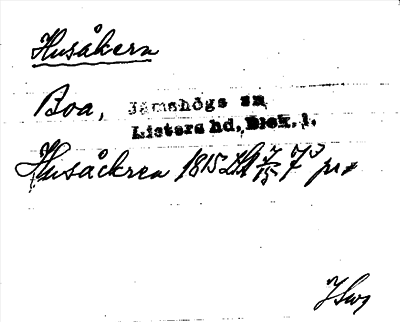 Husåkern
Boa, Jämshögs sn
Listers hd, Blek. l.
Husåckren 1815 LA 7/15 7